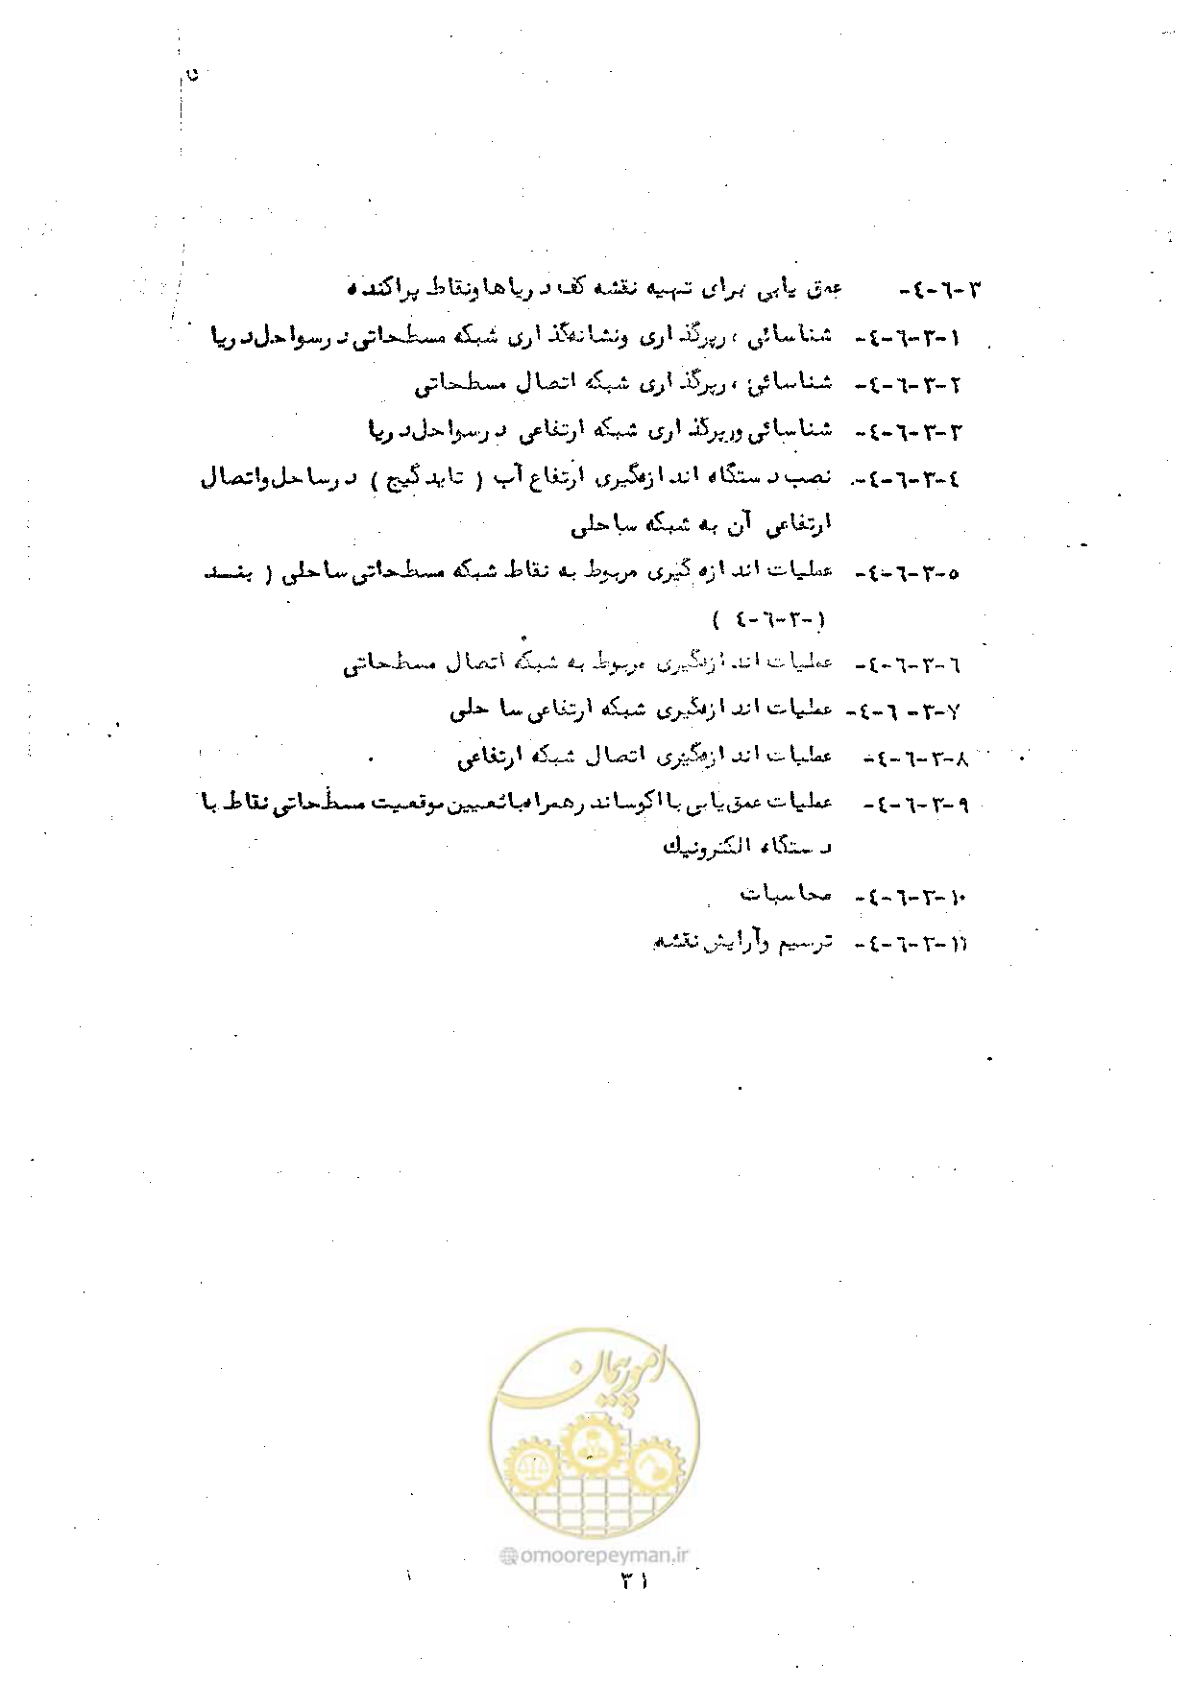 ۳-۶-۴- عمق یابی برای تهیه نقشه کف دریاها ونقاط پراکنده
۱-۳-۶-۴- شناسائی ، رپرگذاری ونشانه‌گذاری شبکه مسطحاتی درسواحل دریا
۲-۳-۶-۴- شناسائی ، رپرگذاری شبکه اتصال مسطحاتی
۳-۳-۶-۴- شناسائی ورپرگذاری شبکه ارتفاعی درسواحل دریا
۴-۳-۶-۴- نصب دستگاه اندازه‌گیری ارتفاع آب ( تایدگیج ) درساحل واتصال
ارتفاعی آن به شبکه ساحلی
۵-۳-۶-۴- عملیات اندازه گیری مربوط به نقاط شبکه مسطحاتی ساحلی ( بنــد
( -۳-۶-۴ )
۶-۳-۶-۴- عملیات اندازه‌گیری مربوط به شبکه اتصال مسطحاتی
۷-۳-۶-۴- عملیات اندازه‌گیری شبکه ارتفاعی ساحلی
۸-۳-۶-۴- عملیات اندازه‌گیری اتصال شبکه ارتفاعی
۹-۳-۶-۴- عملیات عمق‌یابی با اکوساندر همراه با تعیین موقعیت مسطحاتی نقاط با
دستگاه الکترونیک
۱۰-۳-۶-۴- محاسبات
۱۱-۳-۶-۴- ترسیم وآرایش نقشه
امور پیمان
@omoorepeyman.ir
۳۱